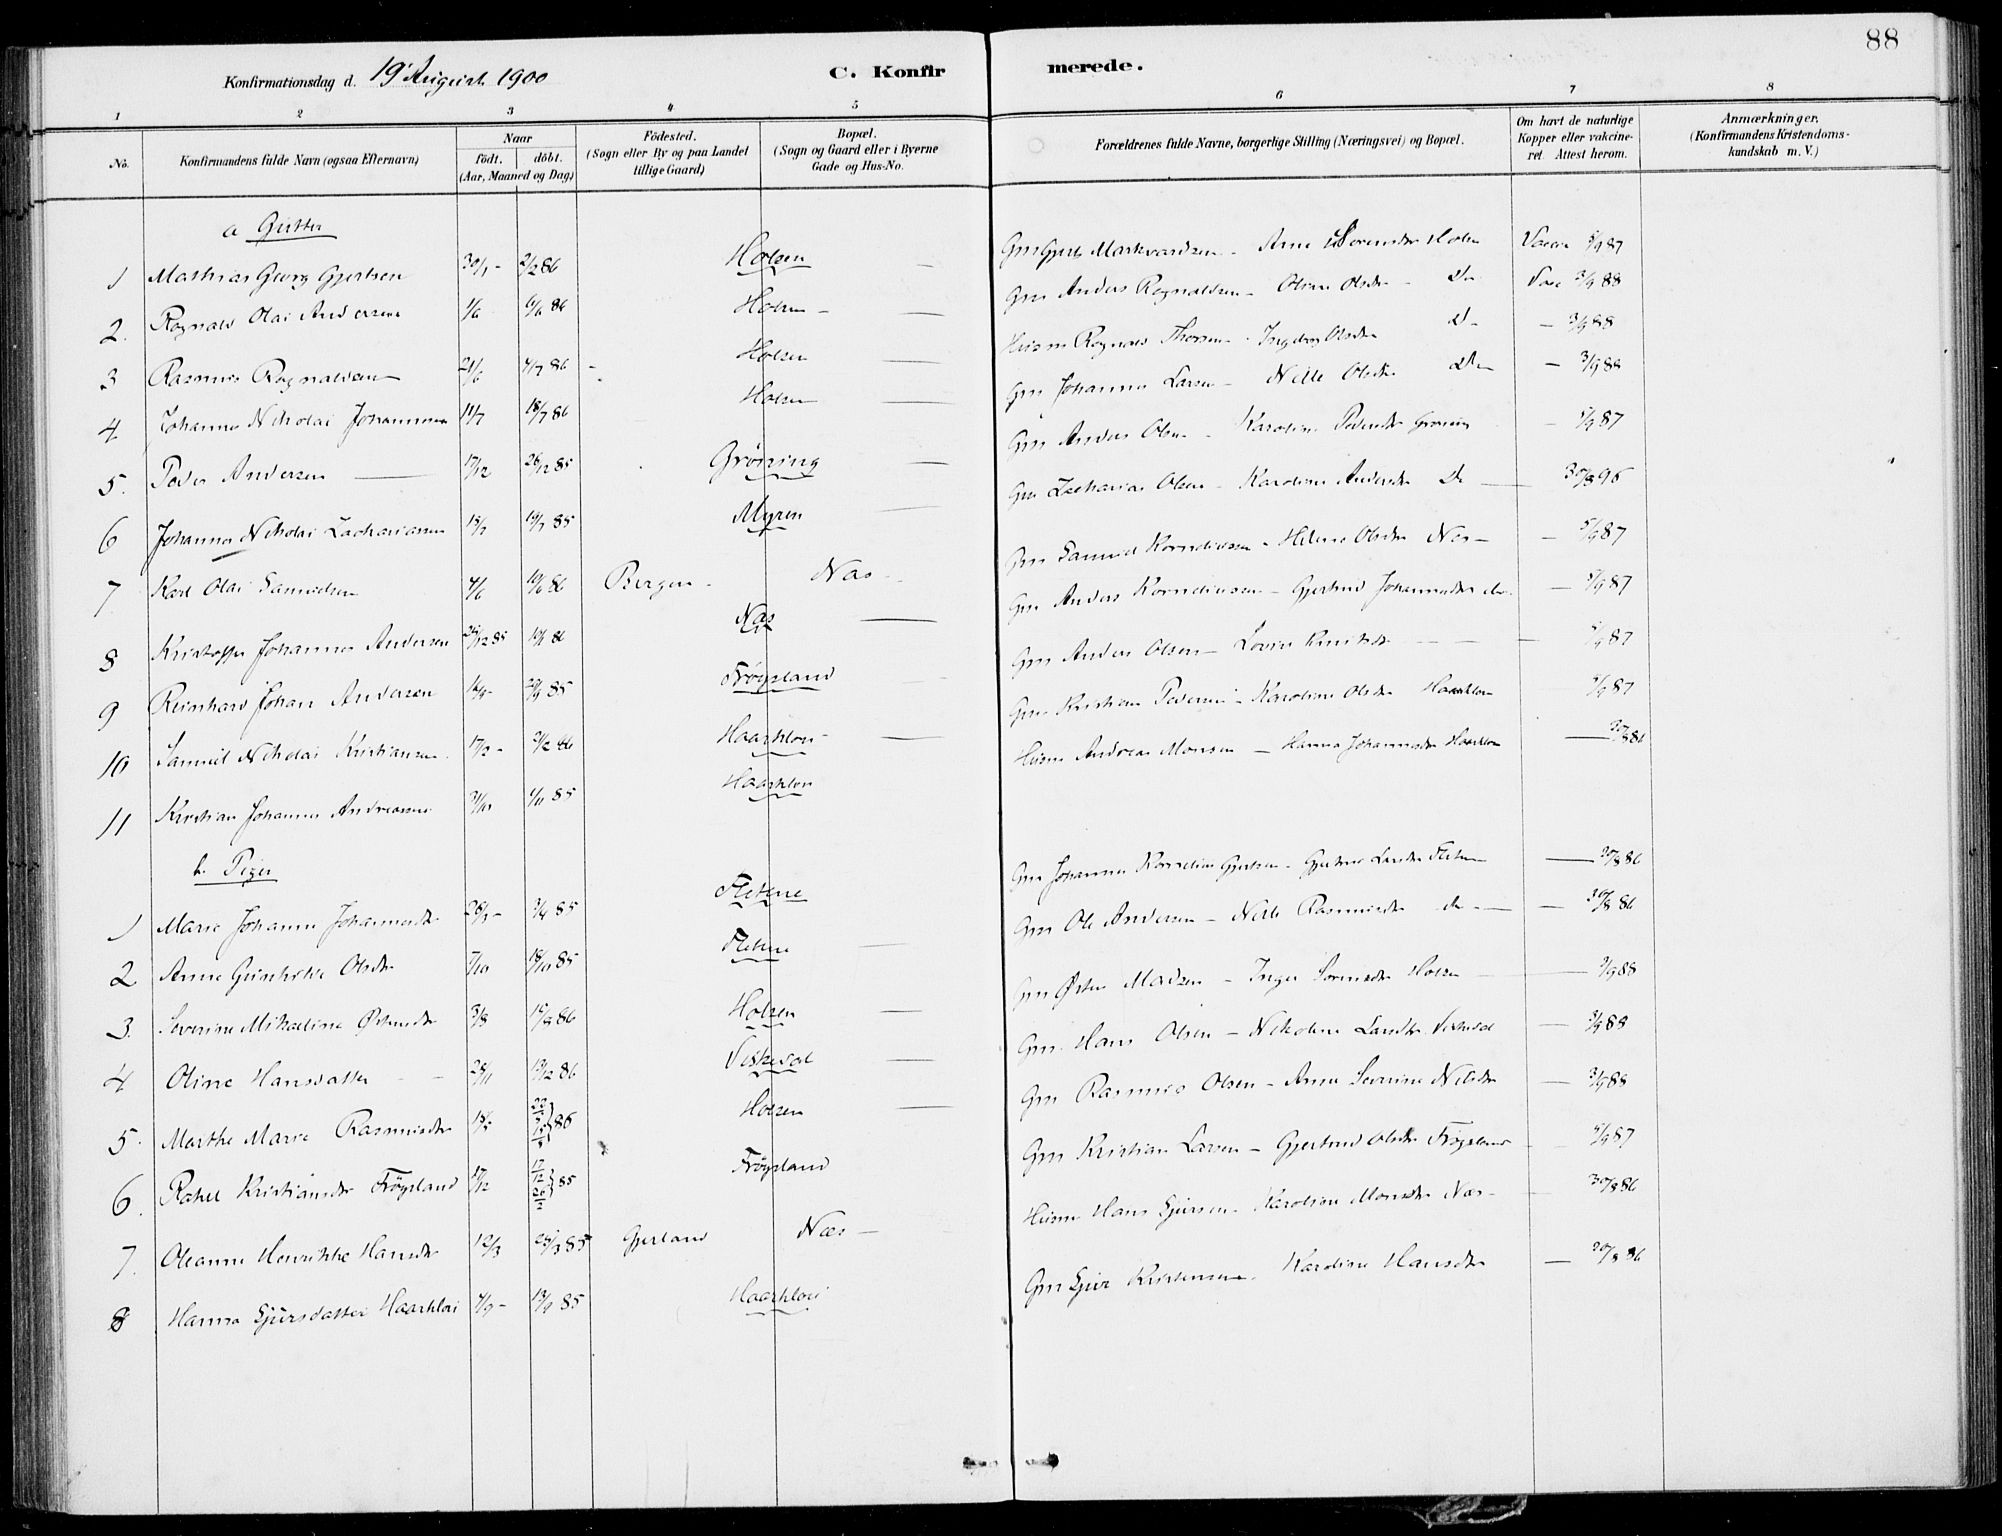 88
Konfirmationsdag d. 19 August 1900
C. Konfirmerede.
1 2 3 4 5 6 7 8
No.
Konfirmandens fulde Navn (ogsaa Efternavn)
Naar
født. døbt.
(Aar, Maaned og Dag)
Fødested.
(Sogn eller By og paa Landet
tillige Gaard)
Bopæl.
(Sogn og Gaard eller i Byerne
Gade og Hus-No.
Forældrenes fulde Navne, borgerlige Stilling (Næringsvei) og Bopæl.
Om havt de naturlige
Kopper eller vakcine-
ret. Attest herom.
Anmærkninger.
(Konfirmandens Kristendoms-
kundskab m. V.)
a Gutter
1 Mathias Georg Gjertsen 30/1 - 2/2 86 Holsen — Gm Gjert Markvardsen - Holsen 5/9 87
2. Rognald Olai Andersen 1/6 6/6 86 Holsen — Gm Anders Rognaldsen - Oline Olsdr - Do 3/9 88
3 Rasmus Rognaldsen 21/6 4/7 86 - Holsen — Husm Rognald Thorsen - Ingeborg Olsdr D - — 3/9 88
4 Johannes Nikolai Johannesen 11/7 18/7 86 Holsen — Gm Johannes Larsen - Nille Olsdr Do — 3/9 88
5. Peder Andersen — 17/12 26/12 85 Grøning — Gm Anders Olsen - Karoline Pedersdr Grøning - 5/9 87
6 Johannes Nikolai Zachariassen 15/7 19/7 85 Myren — Gm Zacharias Olsen - Karoline Andersdr Do — 30/8 96
7 Karl Olai Samuelsen 4/6 10/6 86 Bergen - Næs - Gm Samuel Korneliussen - Helene Olsdr Næs - — 5/9 87
8 Kristoffer Johannes Andersen 12 85 86 Næs — Gm Anders Korneliussen - Gjertrud Johannesdr do — 5/9 87
9 Reinhard Johan Andersen 85 Frøysland — Gm Anders Olsen - Lovise Knutsdr - — 5/9 87
10 Samuel Nikolai Kristiansen 17/2 - 2/2 86 Haarklou - Gm Kristian Pedersen - Karoline Olsdr Haarklou — 5/9 87
11 Kristian Johannes Andreassen 31/10 4/11 85 Haarklou Husm Andreas Monsen — Hanna Johannesdr Haarklou — 30/8 86
b. Piger
1 Marie Johanne Johannesdr 28/3 - 3/4 85 Fletene Gm Johannes Kornelius Gjertsen - Gjertine Larsdr — 30/8 86
2 Anne Olsdr 7/10 18/10 85 Fletene — Gm Ole Andersen - Nille Rasmusdr do — 30/8 86
3. Severine Mikaeline Østensdr 3/8 15/8 86 Holsen — Gm Østen Madsen - Inger Sørensdr Holsen — 3/9 88
4 Oline Hansdatter - 28/11 12 86 Viksvod — Gm Hans Olsen - Nikoline Larsdr — 3/9 88
5. Marthe Marie Rasmusdr 86 Holsen — Gm Rasmus Olsen - Anne Severine Nilsdr — 3/9 88
6. Rakel Kristiansdr Frøysland 17/12 17/12 26/2 85 Frøysland Gm Kristian Larsen - Gjertrud Olsdr Frøysland - 5/9 87
7. Oleanne Henrikke Hansdr 12/3 25/3 85 Gjerland Næs — Husm Hans Sjursen - Karoline Monsdr Næs - 30/8 86
8 Hanna Sjursdatter Haarklou 4/9 - 13/9 85 Haarklou Gm Sjur Kristensen. Karoline Hansdr — 30/8 86